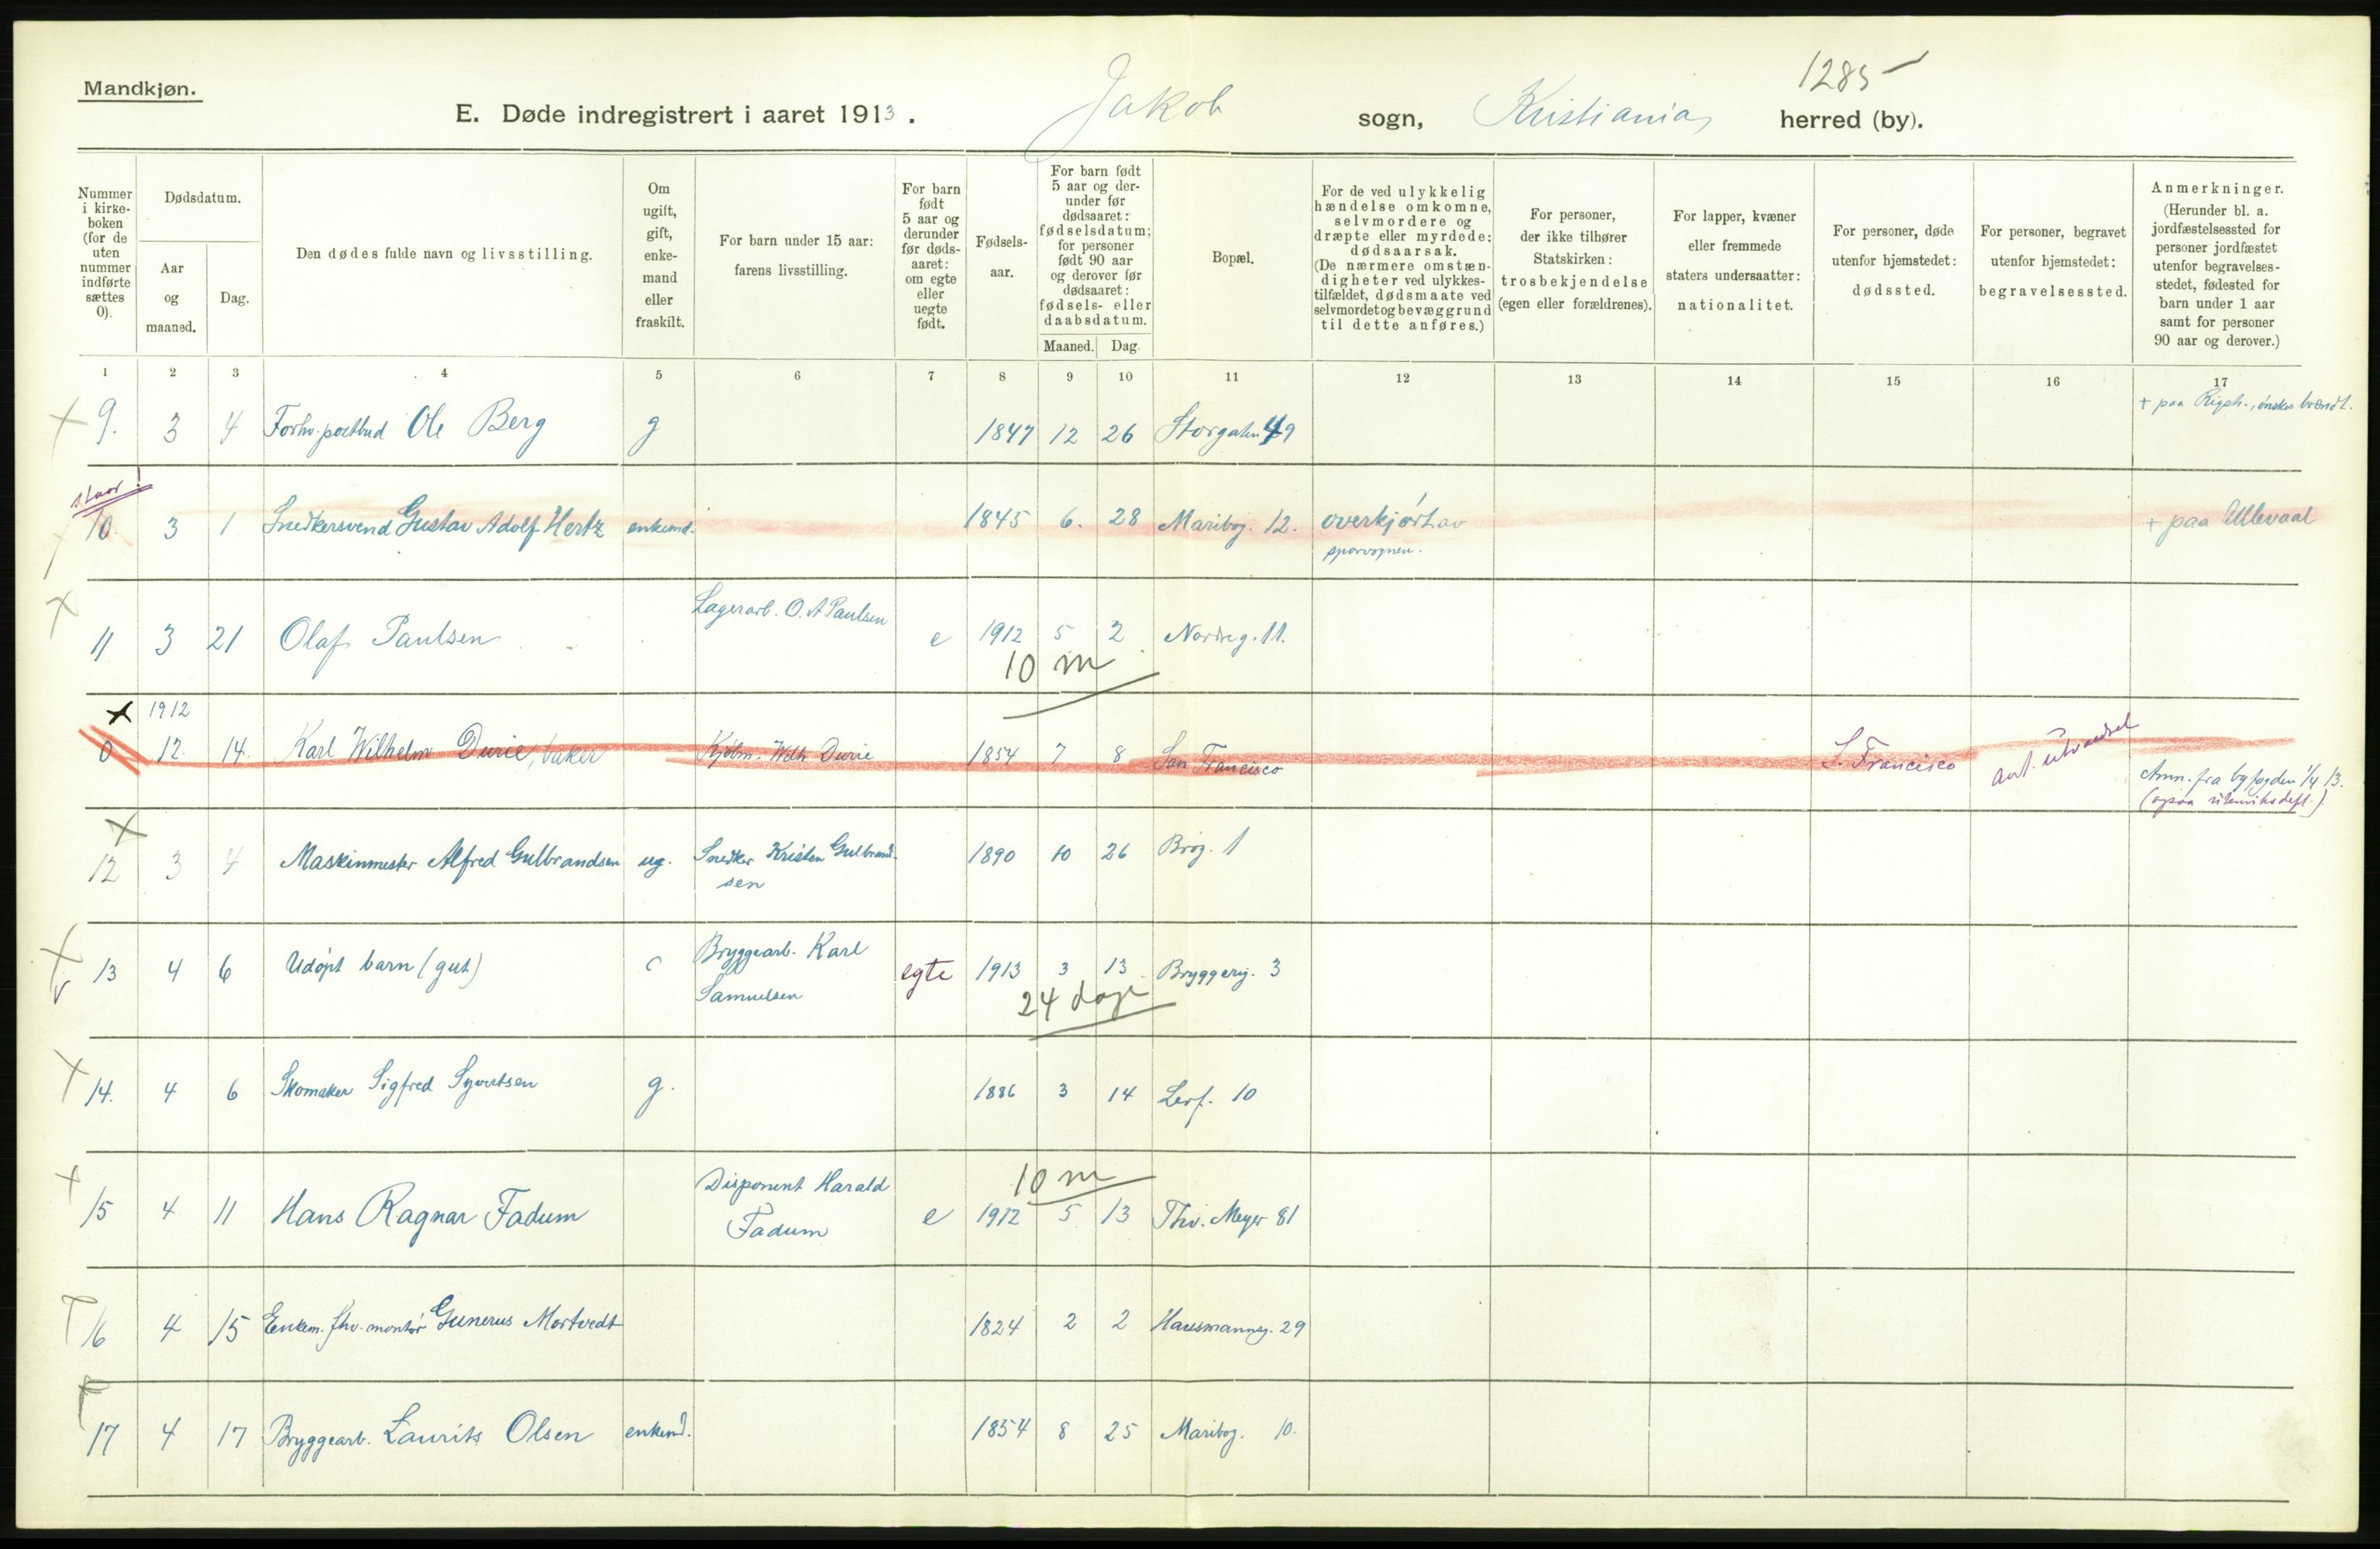 Mandkjøn.
1285
E. Døde indregistrert i aaret 1913. Jakob sogn, Kristiania herred (by).
Nummer i kirke-boken (for de uten nummer indførte sættes 0).
Dødsdatum.
Aar og maaned.
Dag.
Den dødes fulde navn og livsstilling.
Om ugift, gift, enke-mand eller fraskilt.
For barn under 15 aar: farens livsstilling.
For barn født 5 aar og derunder før døds-aaret: om egte eller uegte født.
Fødsels-aar.
For barn født 5 aar og der-under før dødsaaret: fødselsdatum; for personer født 90 aar og derover før dødsaaret: fødsels- eller daabsdatum.
Maaned. Dag.
Bopæl.
For de ved ulykkelig hændelse omkomne, selvmordere og dræpte eller myrdede: dødsaarsak. (De nærmere omstæn-digheter ved ulykkes-tilfældet, dødsmaate ved selvmordet og bevæggrund til dette anføres.)
For personer, der ikke tilhører Statskirken: trosbekjendelse (egen eller forældrenes).
For lapper, kvæner eller fremmede staters undersaatter: nationalitet.
For personer, døde utenfor hjemstedet: dødssted.
For personer, begravet utenfor hjemstedet: begravelsessted.
Anmerkninger. (Herunder bl. a. jordfæstelsessted for personer jordfæstet utenfor begravelses-stedet, fødested for barn under 1 aar samt for personer 90 aar og derover.)
1 2 3 4 5 6 7 8 9 10 11 12 13 14 15 16 17
9. 3 4 Forhv. postbud Ole Berg g 1847 12 26 Storgaten 49 + paa Rigsh., ønskes brændt.
10. 3 1 Snedkersvend Gustav Adolf Hertz enkemd. 1845 6. 28 Maribog. 12. overkjørt av
sporvognen.
+ paa Ullevaal
11 3 21 Olaf Paulsen Lagerarb. O. A Paulsen e 1912 5 2 Nordreg. 11.
10 m
1912
0 12. 14. Karl Wilhelm Durie, baker Kjøbm. Wilh Durie 1854 7 8 San Francisco S. Francisco ant. utvandret
Anm. fra byfogden 1/4 13.
12 3 4 Maskinmester Alfred Gulbrandsen ug. Snedker Kristen Gulbrand-
sen
1890 10 26 Brog. 1
13 4 6 Udøpt barn (gut) Bryggearb. Karl
Samuelsen
egte 1913 3 13 Bryggerig. 3
24 dage
14. 4 6 Skomaker Sigfred Syvertsen g. 1886 3 14 Lerf. 10
10 m
15 4 11 Hans Ragnar Fadum Disponent Harald
Fadum
e 1912 5 13 Thv. Meyer 81
16 4 15 Enkem. fhv. montør Gunerus Mortvedt 1824 2 2 Hausmannsg. 29
17 4 17 Bryggearb. Laurits Olsen enkemd. 1854 8 25 Maribog. 10.